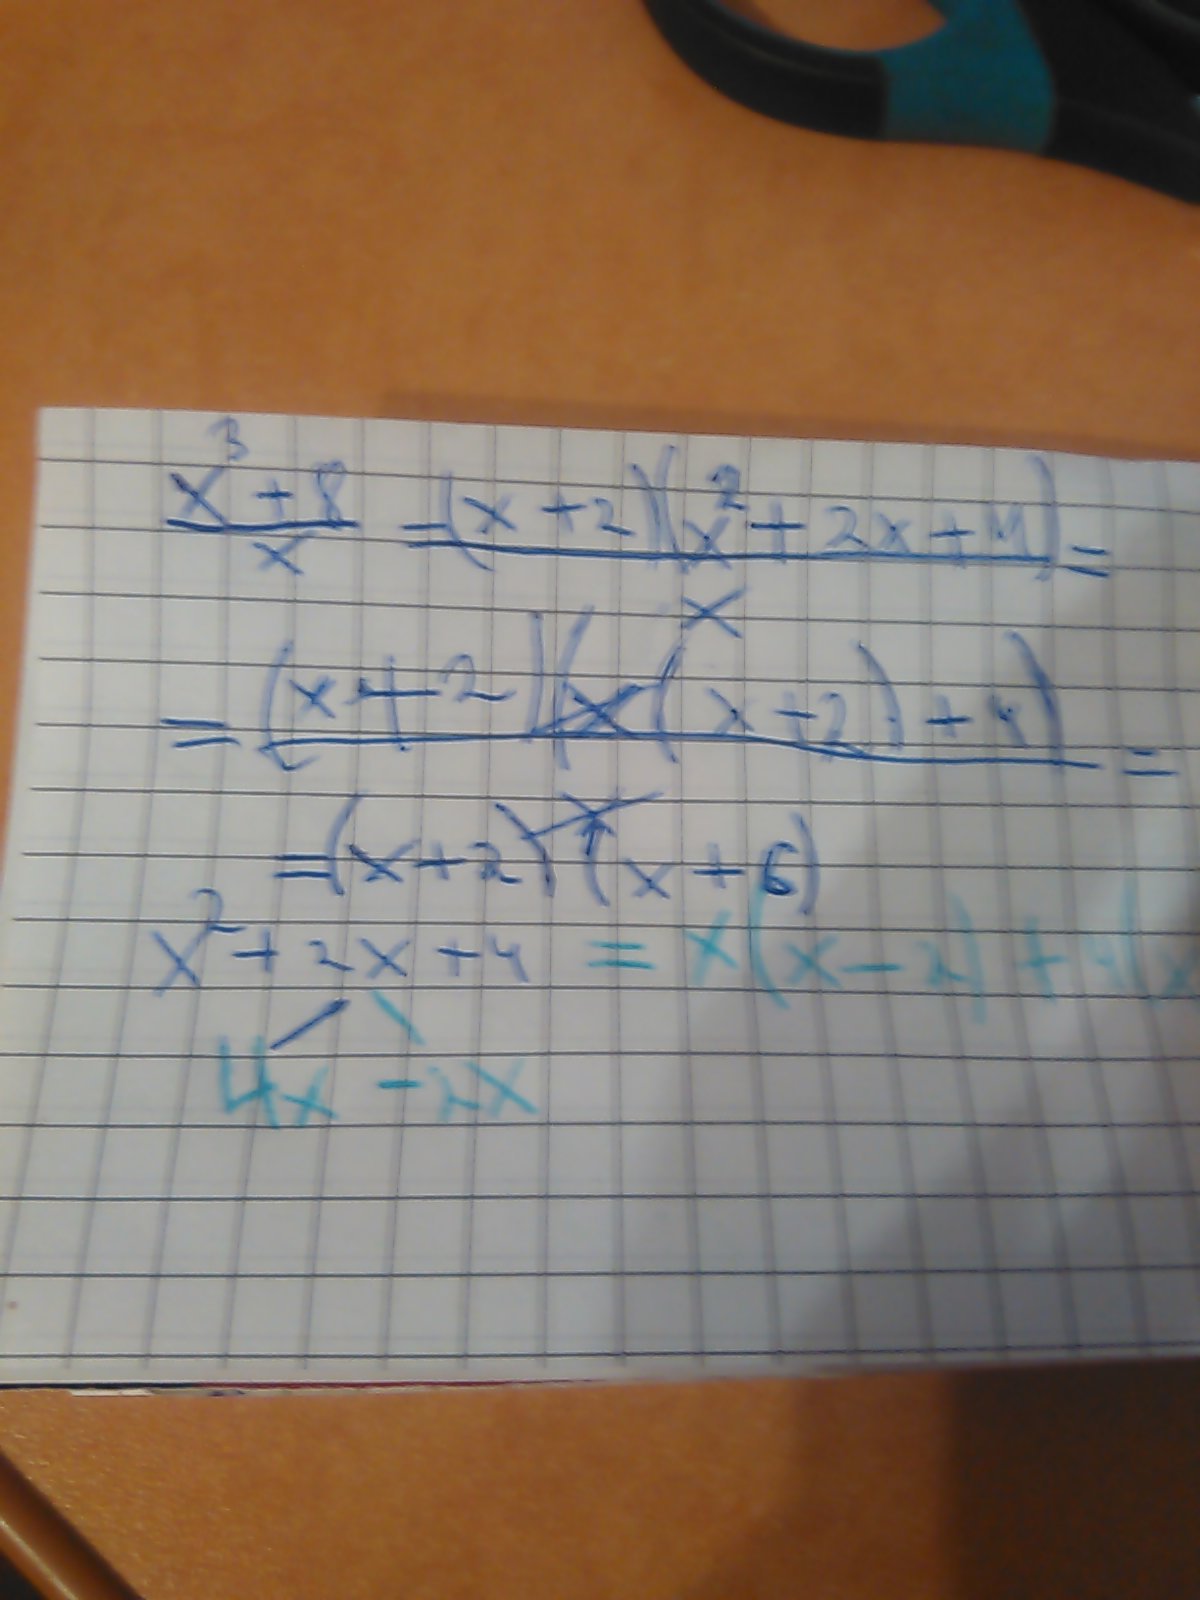 x³ + 8 / x = (x + 2)(x² + 2x + 4) / x =
= (x + 2)(x(x + 2) + 4) / x =
= (x + 2)(x + 6)
x² + 2x + 4 = x(x - 2) + 4(x
4x - 2x